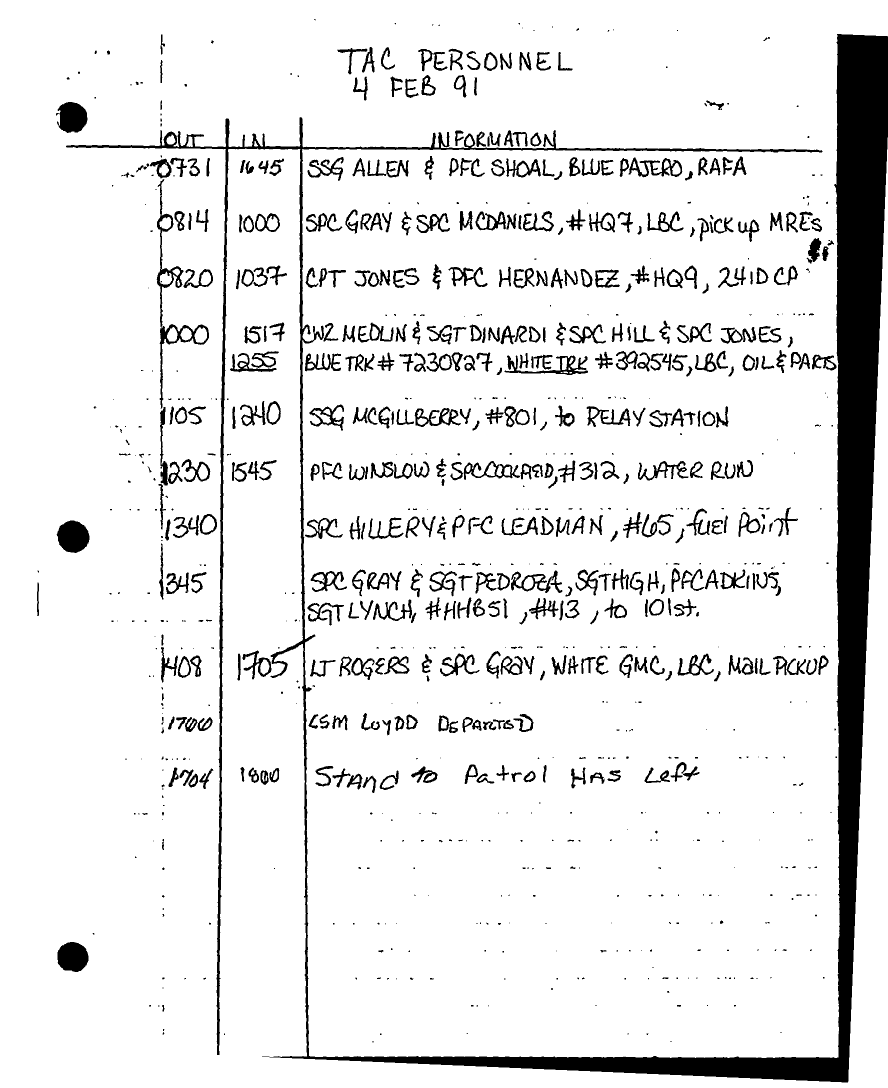 TAC PERSONNEL
4 FEB 91
OUT IN INFORMATION
0731 1645 SSG ALLEN & PFC SHOAL, BLUE PAJERO, RAFA
0814 1000 SPC GRAY & SPC MCDANIELS, #HQ7, LBC, pick up MREs
0820 1037 CPT JONES & PFC HERNANDEZ, #HQ9, 24ID CP
1000 1517 CW2 MEDLIN & SGT DINARDI & SPC HILL & SPC JONES,
1255 BLUE TRK # 7230827, WHITE TRK #392545, LBC, OIL & PARTS
1105 1240 SSG MCGILLBERRY, #801, to RELAY STATION
1230 1545 PFC WINSLOW & SPC, #312, WATER RUN
1340 SPC HILLERY & PFC LEADMAN, #65, fuel Point
1345 SPC GRAY & SGT PEDROZA, SGT HIGH, PFC ADKINS,
SGT LYNCH, #HHB51, #413, to 101st.
1408 1705 LT ROGERS & SPC GRAY, WHITE GMC, LBC, MAIL PICKUP
1700 LOYDD DEPARTED
1704 1800 Stand to Patrol Has Left